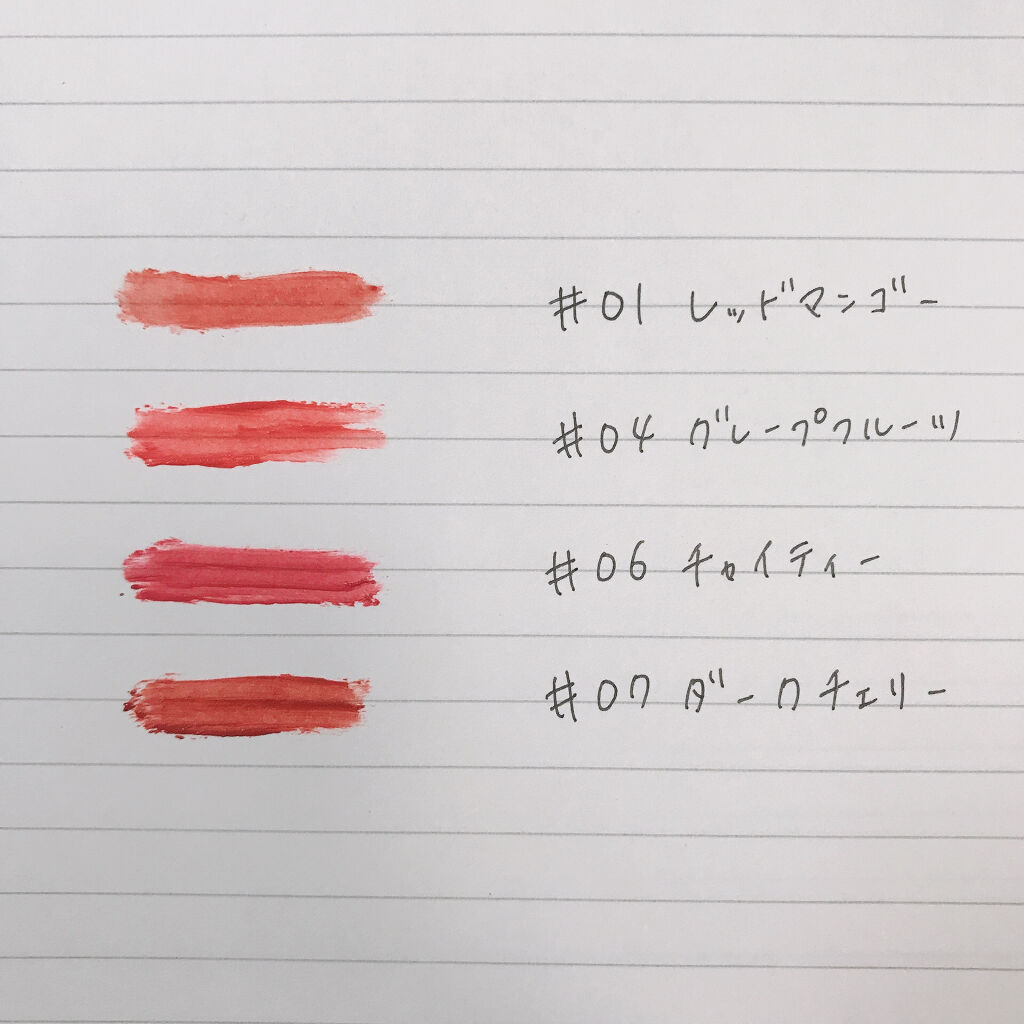 #01 レッドマンゴー
#04 グレープフルーツ
#06 チャイティー
#07 ダークチェリー